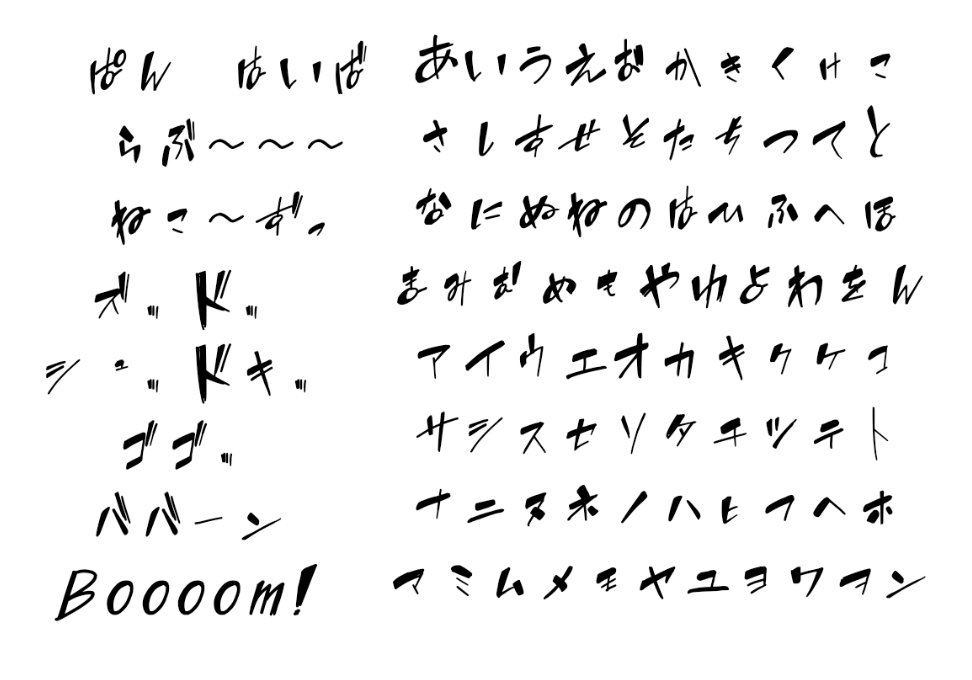 ぱん　はいば
らぶ～～～
ねこ～ずっ
ズッドッ
シュッドキッ
ゴゴッ
ババーン
Boooom!
あいうえおかきくけこ
さしすせそたちつてと
なにぬねのはひふへほ
まみむめもやゆよわをん
アイウエオカキクケコ
サシスセソタチツテト
ナニヌネノハヒフヘホ
マミムメモヤユヨワヲン